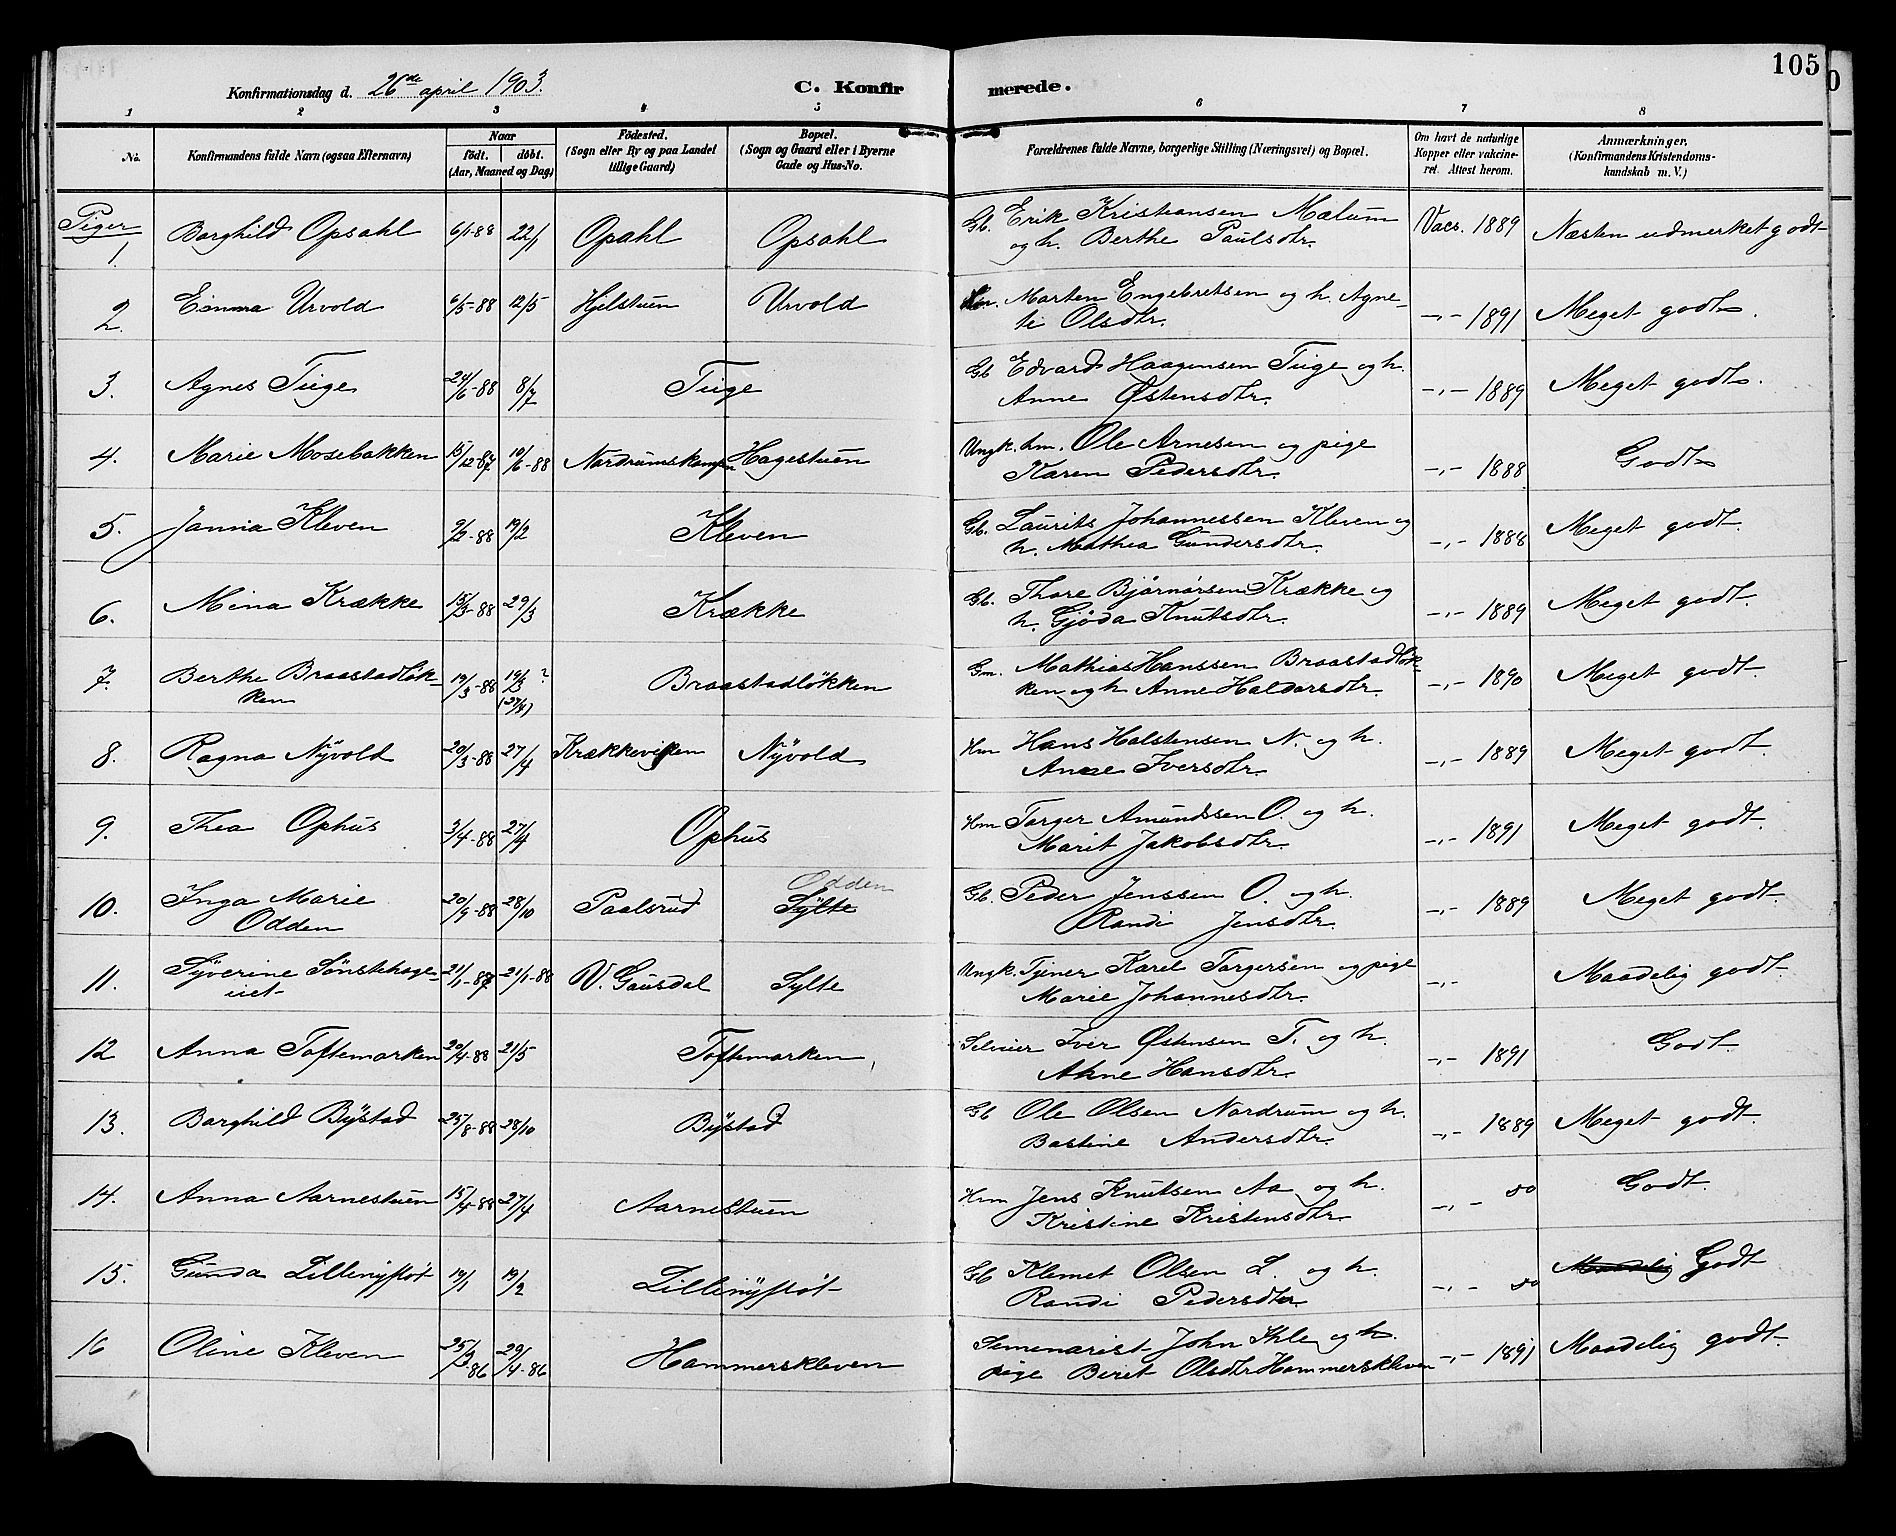 105
Konfirmationsdag d. 26de april 1903. C. Konfirmerede.
1 2 3 4 5 6 7 8
No. Konfirmandens fulde Navn (ogsaa Efternavn) Naar født. døbt. (Aar, Maaned og Dag) Fødested. (Sogn eller By og paa Landet tillige Gaard) Bopæl. (Sogn og Gaard eller i Byerne Gade og Hus-No. Forældrenes fulde Navne, borgerlige Stilling (Næringsvei) og Bopæl. Om havt de naturlige Kopper eller vakcineret. Attest herom. Anmærkninger. (Konfirmandens Kristendomskundskab m. V.)
Piger
1. Borghild Opsahl 6/1-88 22/1 Opahl Opsahl Gb. Erik Kristiansen Mælum Vacs. 1889 Næsten udmerket godt
og h. Berthe Paulsdtr.
2. Emma Urvold 6/5-88 12/5 Hjelstuen Urvold Hm. Morten Engebretsen og h. Agne- -"- 1891 Meget godt.
te Olsdtr.
3. Agnes Tuge 24/6-88 8/7 Tuge Gb Edvard Haagensen Tuge og h. -"- 1889 Meget godt.
Anne Østensdtr.
4. Marie Mosebakken 15/12-87 10/6-88 Nordrumskampen Hagestuen Ungk. hm. Ole Arnesen og pige -"- 1888 Godt
Karen Pedersdtr.
5. Janna Kleven 9/2-88 19/2 Kleven Gb. Laurits Johannessen Kleven og -"- 1888 Meget godt.
h. Mathea Gundersdtr.
6. Mina Krække 15/3-88 29/3 Krække Gb. Thore Bjørnørsen Krække og -"- 1889 Meget godt.
h. Gjøda Knutsdtr.
7. Berthe Braastadløk- 19/3-88 19/3 ? Braastadløkken Gm. Mathias Hanssen Braastadløk- -"- 1890 Meget godt.
ken (27/4) ken og h Anne Haldorsdtr.
8. Ragna Nyvold 20/3-88 27/4 Krækkeviken Nyvold Hm Hans Halstensen N. og h. -"- 1889 Meget godt.
Anne Iversdtr.
9. Thea Ophus 3/4-88 27/4 Ophus Hm Torger Amundssen O. og h. -"- 1891 Meget godt.
Marit Jakobsdtr.
Odden
10. Inga Marie 20/9-88 28/10 Paalsrud Sylte Gb. Peder Jenssen O. og h. -"- 1889 Meget godt.
Odden Randi Jensdtr.
11. Syverine Sønstehage- 21/11-87 21/1-88 V. Gausdal Sylte Ungk. Tjener Karel Torgersen og pige -"- Maadelig godt.
Marie Johannesdtr.
12 Anna Toftemarken 20/4-88 21/5 Toftemarken Selveier Iver Østensen T. og h. -"- 1891 Godt.
Anne Hansdtr.
13. Borghild Bystad 25/8-88 28/10 Bystad Gb Ole Olsen Nordrum og h. -"- 1889 Meget godt.
Bastine Andersdtr.
14. Anna Aarnestuen 15/4-88 27/4 Aarnestuen Hm Jens Knutsen Aa og h. -"- do Godt.
Kristine Kristensdtr.
15. Gunda Lillenystøt 19/1 19/2 Lillenystøt Gb Klemet Olsen L. og h. -"- do Maadelig Godt
Randi Pedersdtr
16 Oline Kleven 25/3-86 29/4-86 Hammerskleven Semenarist John Ihle og h. -"- 1891 Maadelig godt.
pige Beret Olsdtr Hammerskleven